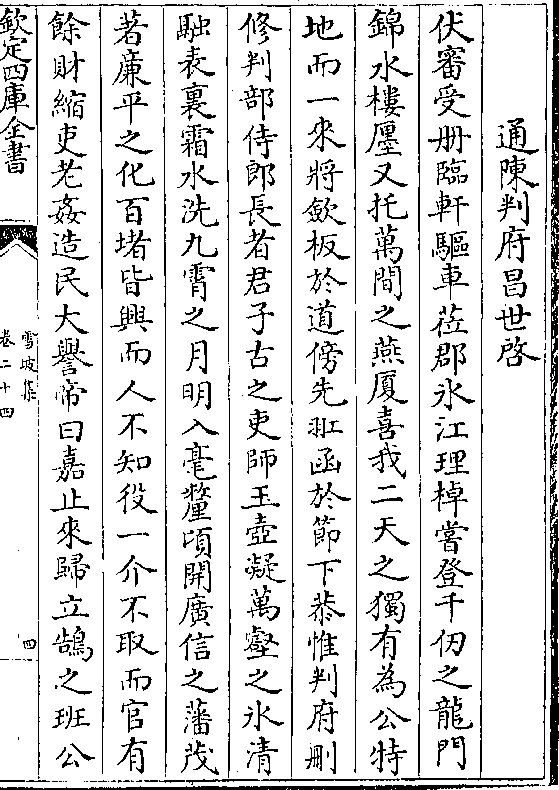 通陳判府昌世啓
伏審受册臨軒驅車莅郡氷江理棹嘗登千仞之龍門
錦水樓㕓又托萬間之燕厦喜我二天之獨有為公特
地而一來將歛板於道傍先㧈函於節下恭惟判府刪
修判部侍郎長者君子古之吏師玉壺凝萬壑之氷清
融表裏霜水洗九霄之月明入毫釐頃開廣信之藩茂
著廉平之化百堵皆興而人不知役一介不取而官有
餘財縮吏老姦造民大譽帝曰嘉止來歸立鵠之班公
欽定四庫全書
雪坡集
卷二十四
四